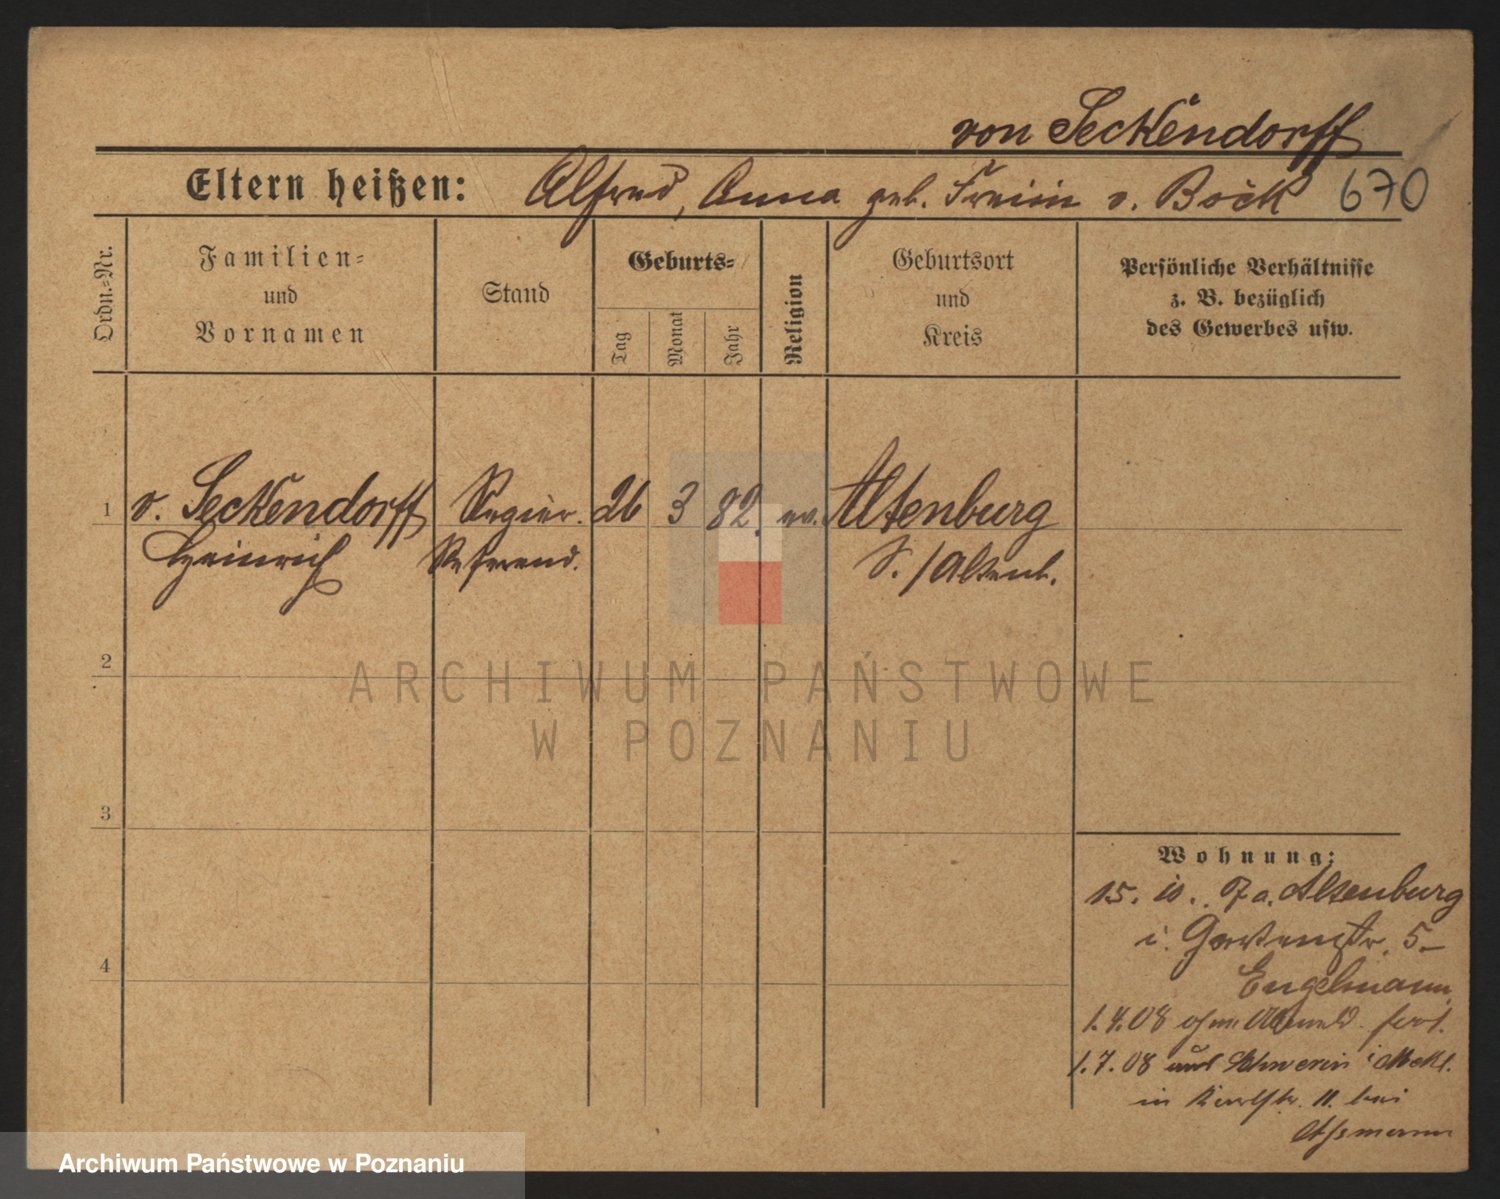 von Seckendorff
Eltern heißen: Alfred, Anna geb. Freiin v. Bock 670
Ordn.-Nr.
Familien-
und
Vornamen
Stand
Geburts-
Tag
Monat
Jahr
Religion
Geburtsort
und
Kreis
Persönliche Verhältnisse
z. B. bezüglich
des Gewerbes usw.
1 v. Seckendorff Regier. 26 3 82. ev. Altenburg
Heinrich Referend. S./Altenb.
2
ARCHIWUM PAŃSTWOWE
W POZNANIU
3
Wohnung:
15. 10. 7 a. Altenburg
i. Gartenstr. 5-
4
Engelmann
1.4.08 ohne Abmeld. fort.
1.7.08 Schwerin i Meckl.
in 11. bei
Assmann
Archiwum Państwowe w Poznaniu